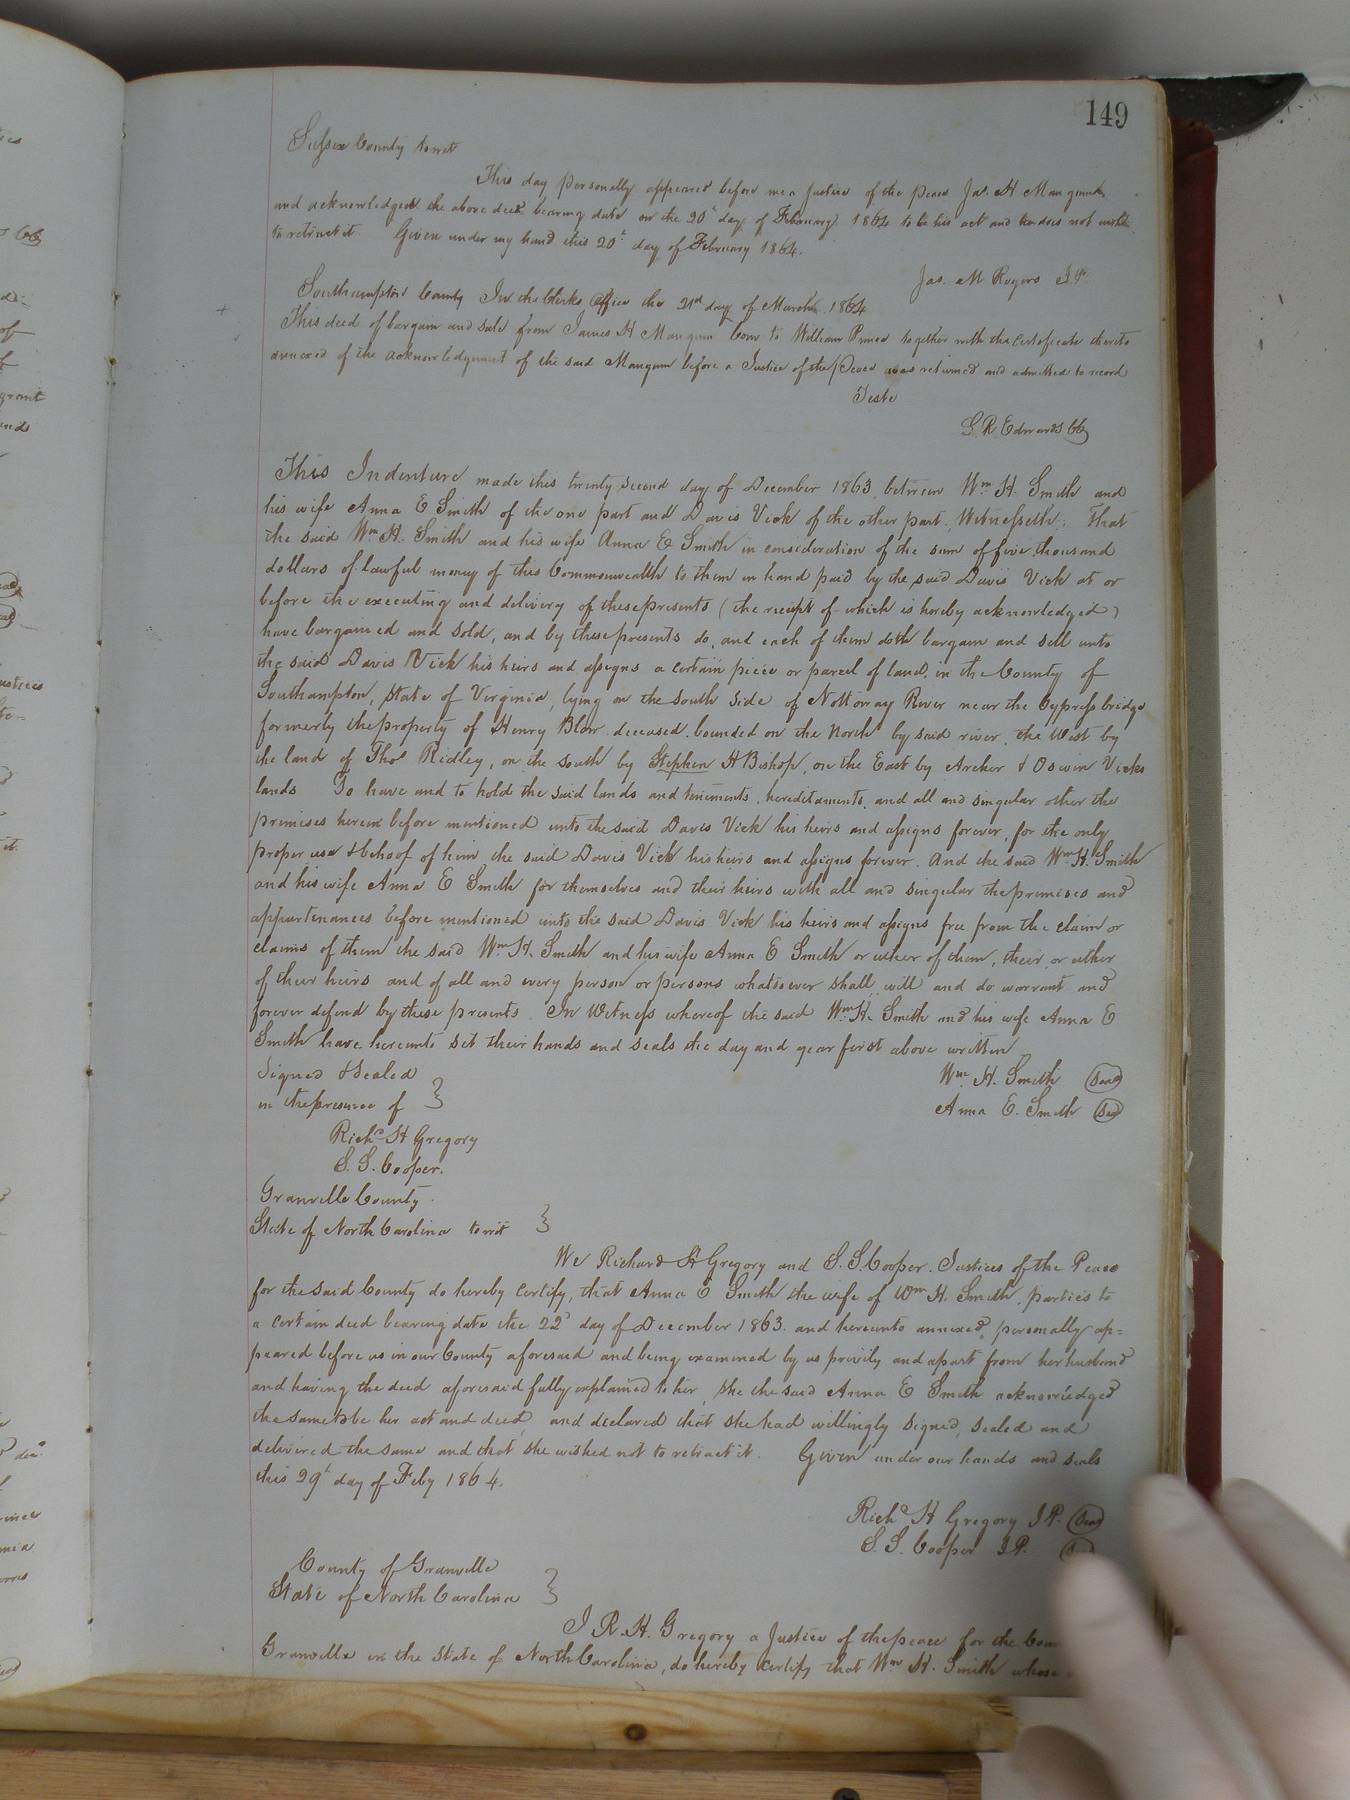 149
Sussex County to wit
This day personally appeared before me a Justice of the peace Jas. H Mangum
and acknowledged the above deed bearing date on the 20th day of February 1864 to be his act and he does not wish
to retract it. Given under my hand this 20th day of February 1864.
Jas. M Rogers J.P.
Southampton County In the Clerks Office the 21st day of March 1864
This deed of bargain and sale from James H Mangum Com to William Prince together with the Certificate thereto
annexed of the acknowledgment of the said Mangum before a Justice of the Peace was returned and admitted to record
Teste
L R Edwards CC
This Indenture made this twenty second day of December 1863 between Wm H. Smith and
his wife Anna E Smith of the one part and Davis Vick of the other part. Witnesseth; That
the said Wm H. Smith and his wife Anna E Smith in consideration of the sum of five thousand
dollars of lawful money of this Commonwealth to them in hand paid by the said Davis Vick at or
before the executing and delivery of these presents (the receipt of which is hereby acknowledged)
have bargained and sold, and by these presents do, and each of them doth bargain and sell unto
the said Davis Vick his heirs and assigns a certain piece or parcel of land, in the County of
Southampton, State of Virginia, lying on the South side of Nottoway River near the Cypress bridge
formerly the property of Henry Blow deceased, bounded on the North by said river, the West by
the land of Thos Ridley, on the South by Stephen H Bishop, on the East by Archer & Oswin Vicks
lands To have and to hold the said lands and teniments, hereditaments, and all and singular other the
premises herein before mentioned unto the said Davis Vick his heirs and assigns forever, for the only
proper use & behoof of him the said Davis Vick his heirs and assigns forever. And the said Wm H. Smith
and his wife Anna E Smith for themselves and their heirs with all and singular the premises and
appurtenances before mentioned unto the said Davis Vick his heirs and assigns free from the claim or
claims of them the said Wm H. Smith and his wife Anna E Smith or either of them, their or either
of their heirs and of all and every person or persons whatsoever shall, will and do warrant and
forever defend by these presents. In Witness whereof the said Wm H. Smith and his wife Anna E
Smith have hereunto set their hands and seals the day and year first above written
Signed & Sealed
in the presence of }
Wm H. Smith (Seal)
Anna E. Smith (Seal)
Richd H Gregory
S. S. Cooper.
Granville County
State of North Carolina to wit }
We Richard H Gregory and S. S. Cooper. Justices of the Peace
for the said County do hereby certify, that Anna E Smith the wife of Wm H. Smith, parties to
a certain deed bearing date the 22d day of December 1863. and hereunto annexed, personally ap=
peared before us in our County aforesaid and being examined by us privily and apart from her husband
and having the deed aforesaid fully explained to her, she the said Anna E Smith acknowledged
the same to be her act and deed, and declared that she had willingly signed, sealed and
delivered the same and that she wished not to retract it. Given under our hands and seals
this 29th day of Feby 1864.
Richd H Gregory J.P. (Seal)
S. S. Cooper J.P. (Seal)
County of Granville
State of North Carolina }
I R. H. Gregory a Justice of the peace for the
Granville in the State of North Carolina, do hereby certify that Wm H. Smith whose